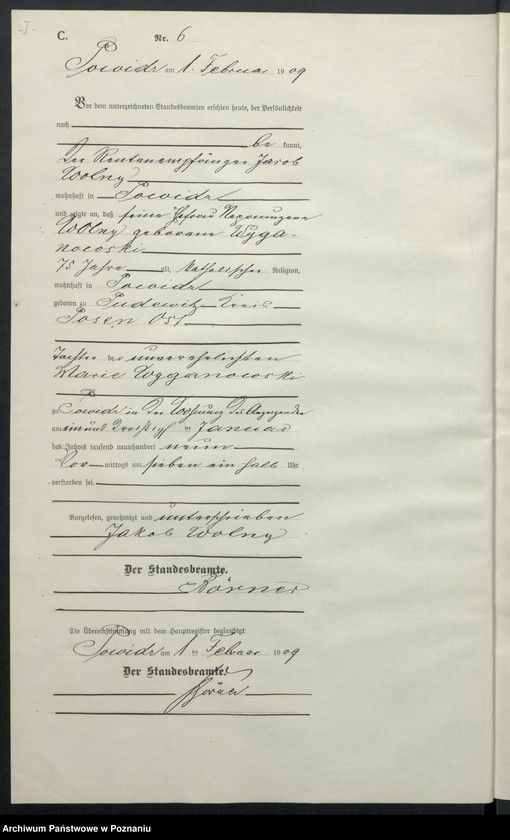 -I-
C.
Nr. 6
Powidz am 1. Februar 1909
Vor dem unterzeichneten Standesbeamten erschien heute, der Persönlichkeit
nach
be kannt,
der Rentenempfänger Jacob
Wolny
wohnhaft in Powidz
und zeigte an, daß seine Ehefrau
Wolny geborene Wyga-
nowski
75 Jahre alt, katholischer Religion,
wohnhaft in Powidz
geboren zu Pudewitz Kreis
Posen Ost
Tochter der unverehelichten
Marie Wyganowski
zu Powidz in der Wohnung des Anzeigenden
am einund dreißigsten Januar
des Jahres tausend neunhundert neun
Vor mittags um sieben ein halb Uhr
verstorben sei.
Vorgelesen, genehmigt und unterschrieben
Jakob Wolny
Der Standesbeamte.
Körner
Die Übereinstimmung mit dem Hauptregister beglaubigt
Powidz am 1 ten Februar 1909
Der Standesbeamte.
Körner
Archiwum Państwowe w Poznaniu